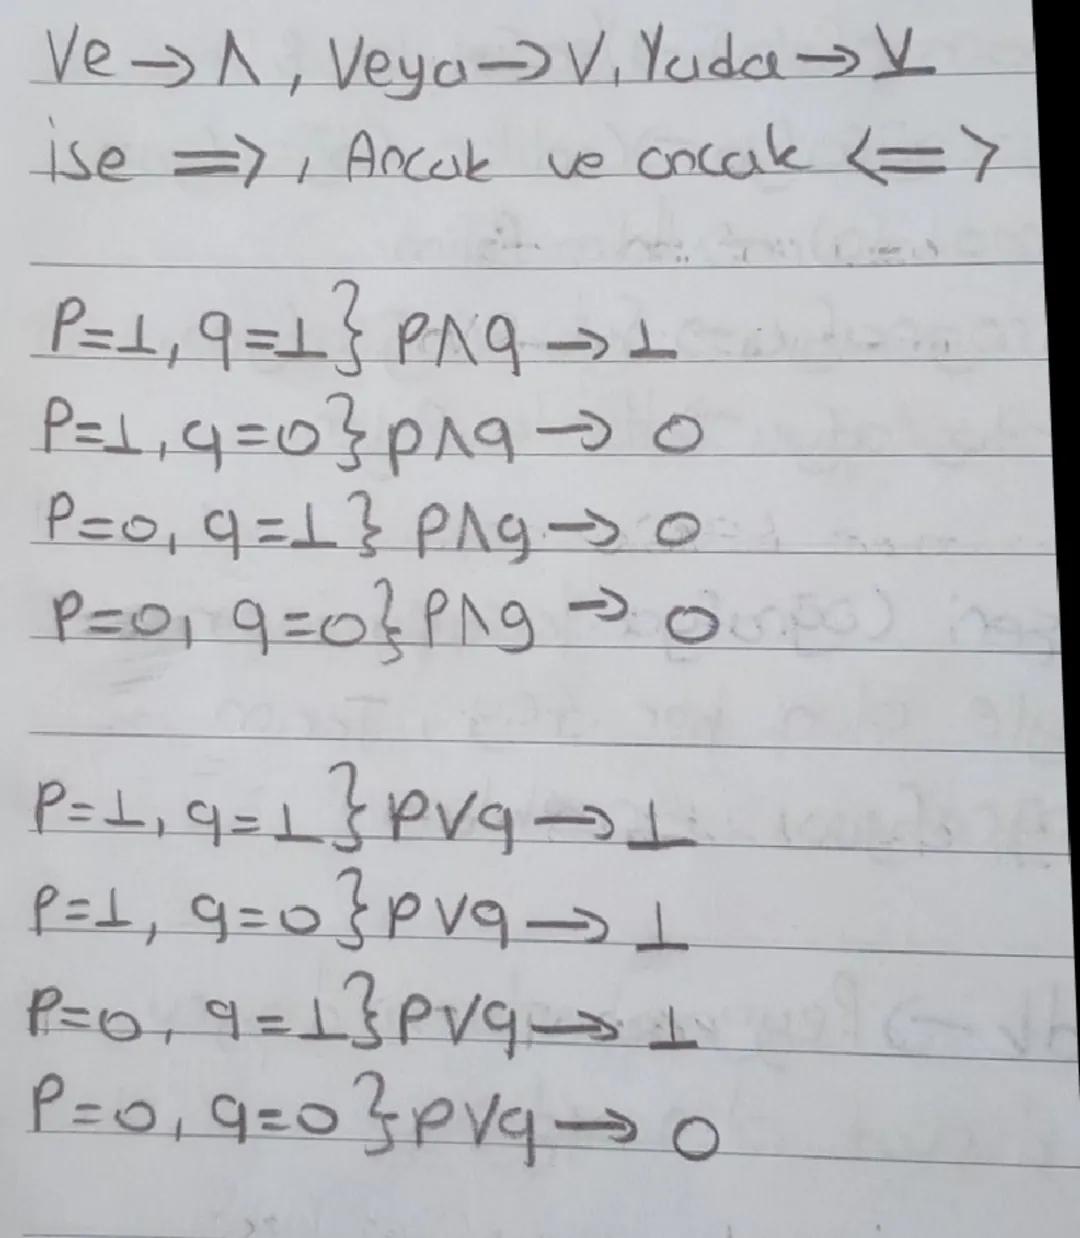 Ve → ∧, Veya → ∨, Yada → ⊻
ise ⇒, Ancak ve ancak <=>
P=1, q=1} p∧q → 1
P=1, q=0} p∧q → 0
P=0, q=1} p∧q → 0
P=0, q=0} p∧q → 0
P=1, q=1} p∨q → 1
P=1, q=0} p∨q → 1
P=0, q=1} p∨q → 1
P=0, q=0} p∨q → 0